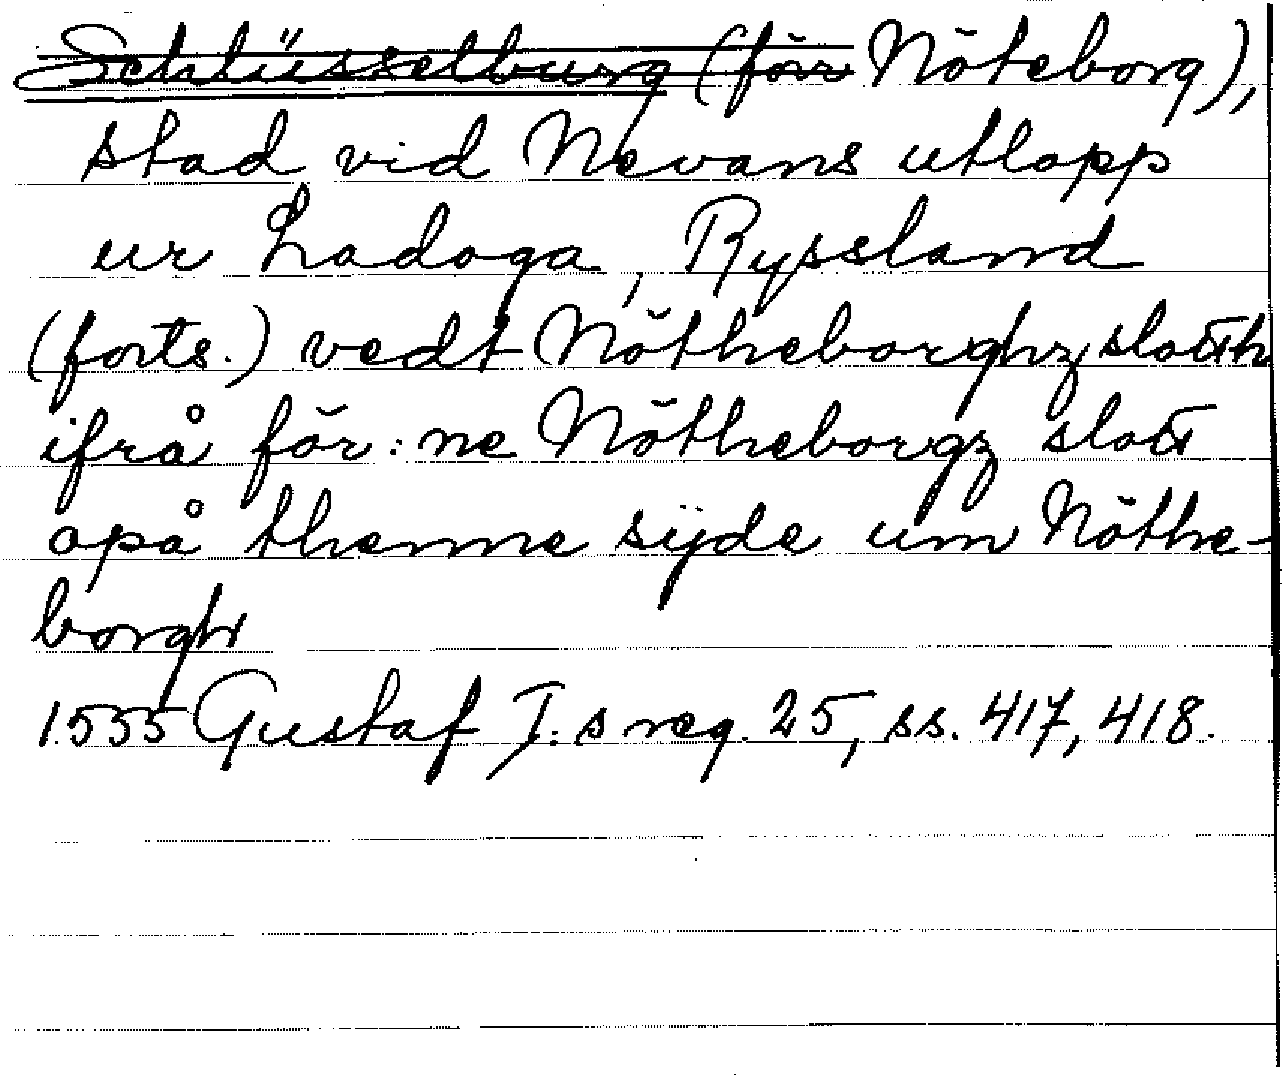 Schlüsselburg (förr Nöteborg),
stad vid Nevans utlopp
ur Ladoga, Ryssland
(forts.) vedt Nötheborghz slotth
ifrå för:ne Nötheborgz slott
opå thenne sijde um Nöthe-
borgh
1555 Gustaf I:s reg. 25, ss. 417, 418.